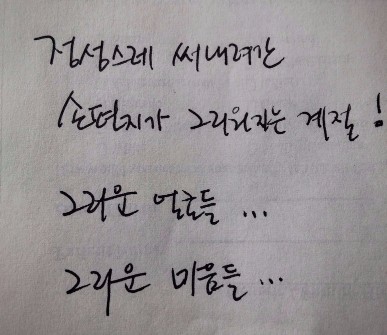 정성스레 써내려간
손편지가 그리워지는 계절!
그리운 얼굴들...
그리운 미움들...